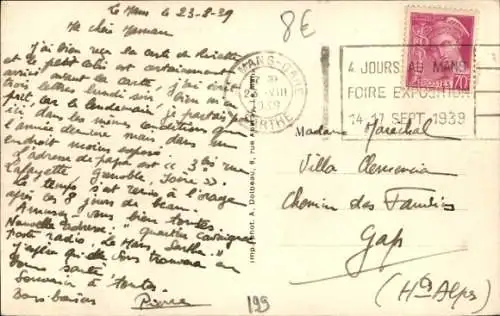 Le Mans le 23-8-39
Ma chère Maman
J'ai bien reçu la carte de Pierrette
et le petit colis est certainement
arrivé avant la carte, j'ai écrit
trois lettres lundi soir, bien m'en
prit, car le lendemain, je partais
ici dans les mêmes conditions que
l'année dernière mais dans un
endroit moins exposé.
L'adresse de papa est " 3 bis rue
Lafayette Grenoble, Isère ".
Le temps s'est remis à l'orage
après ces 8 jours de beau.
Amusez vous bien toutes.
Nouvelle adresse. " quartier Cavaignac
Poste radio. Le Mans, Sarthe. "
J'espère qu'elle vous trouvera en
bonne santé
Souvenir à toutes.
Bons baisers
Pierre
8€
LE MANS-GARE
VIII
1939
SARTHE
4 JOURS AU MANS
FOIRE EXPOSITION
14-17 SEPT. 1939
POSTES 70c
Imp. Phot. A. Dolbeau, 8, rue
Madame Maréchal
Villa Clemencia
Chemin des
Gap
(Htes Alpes)
199